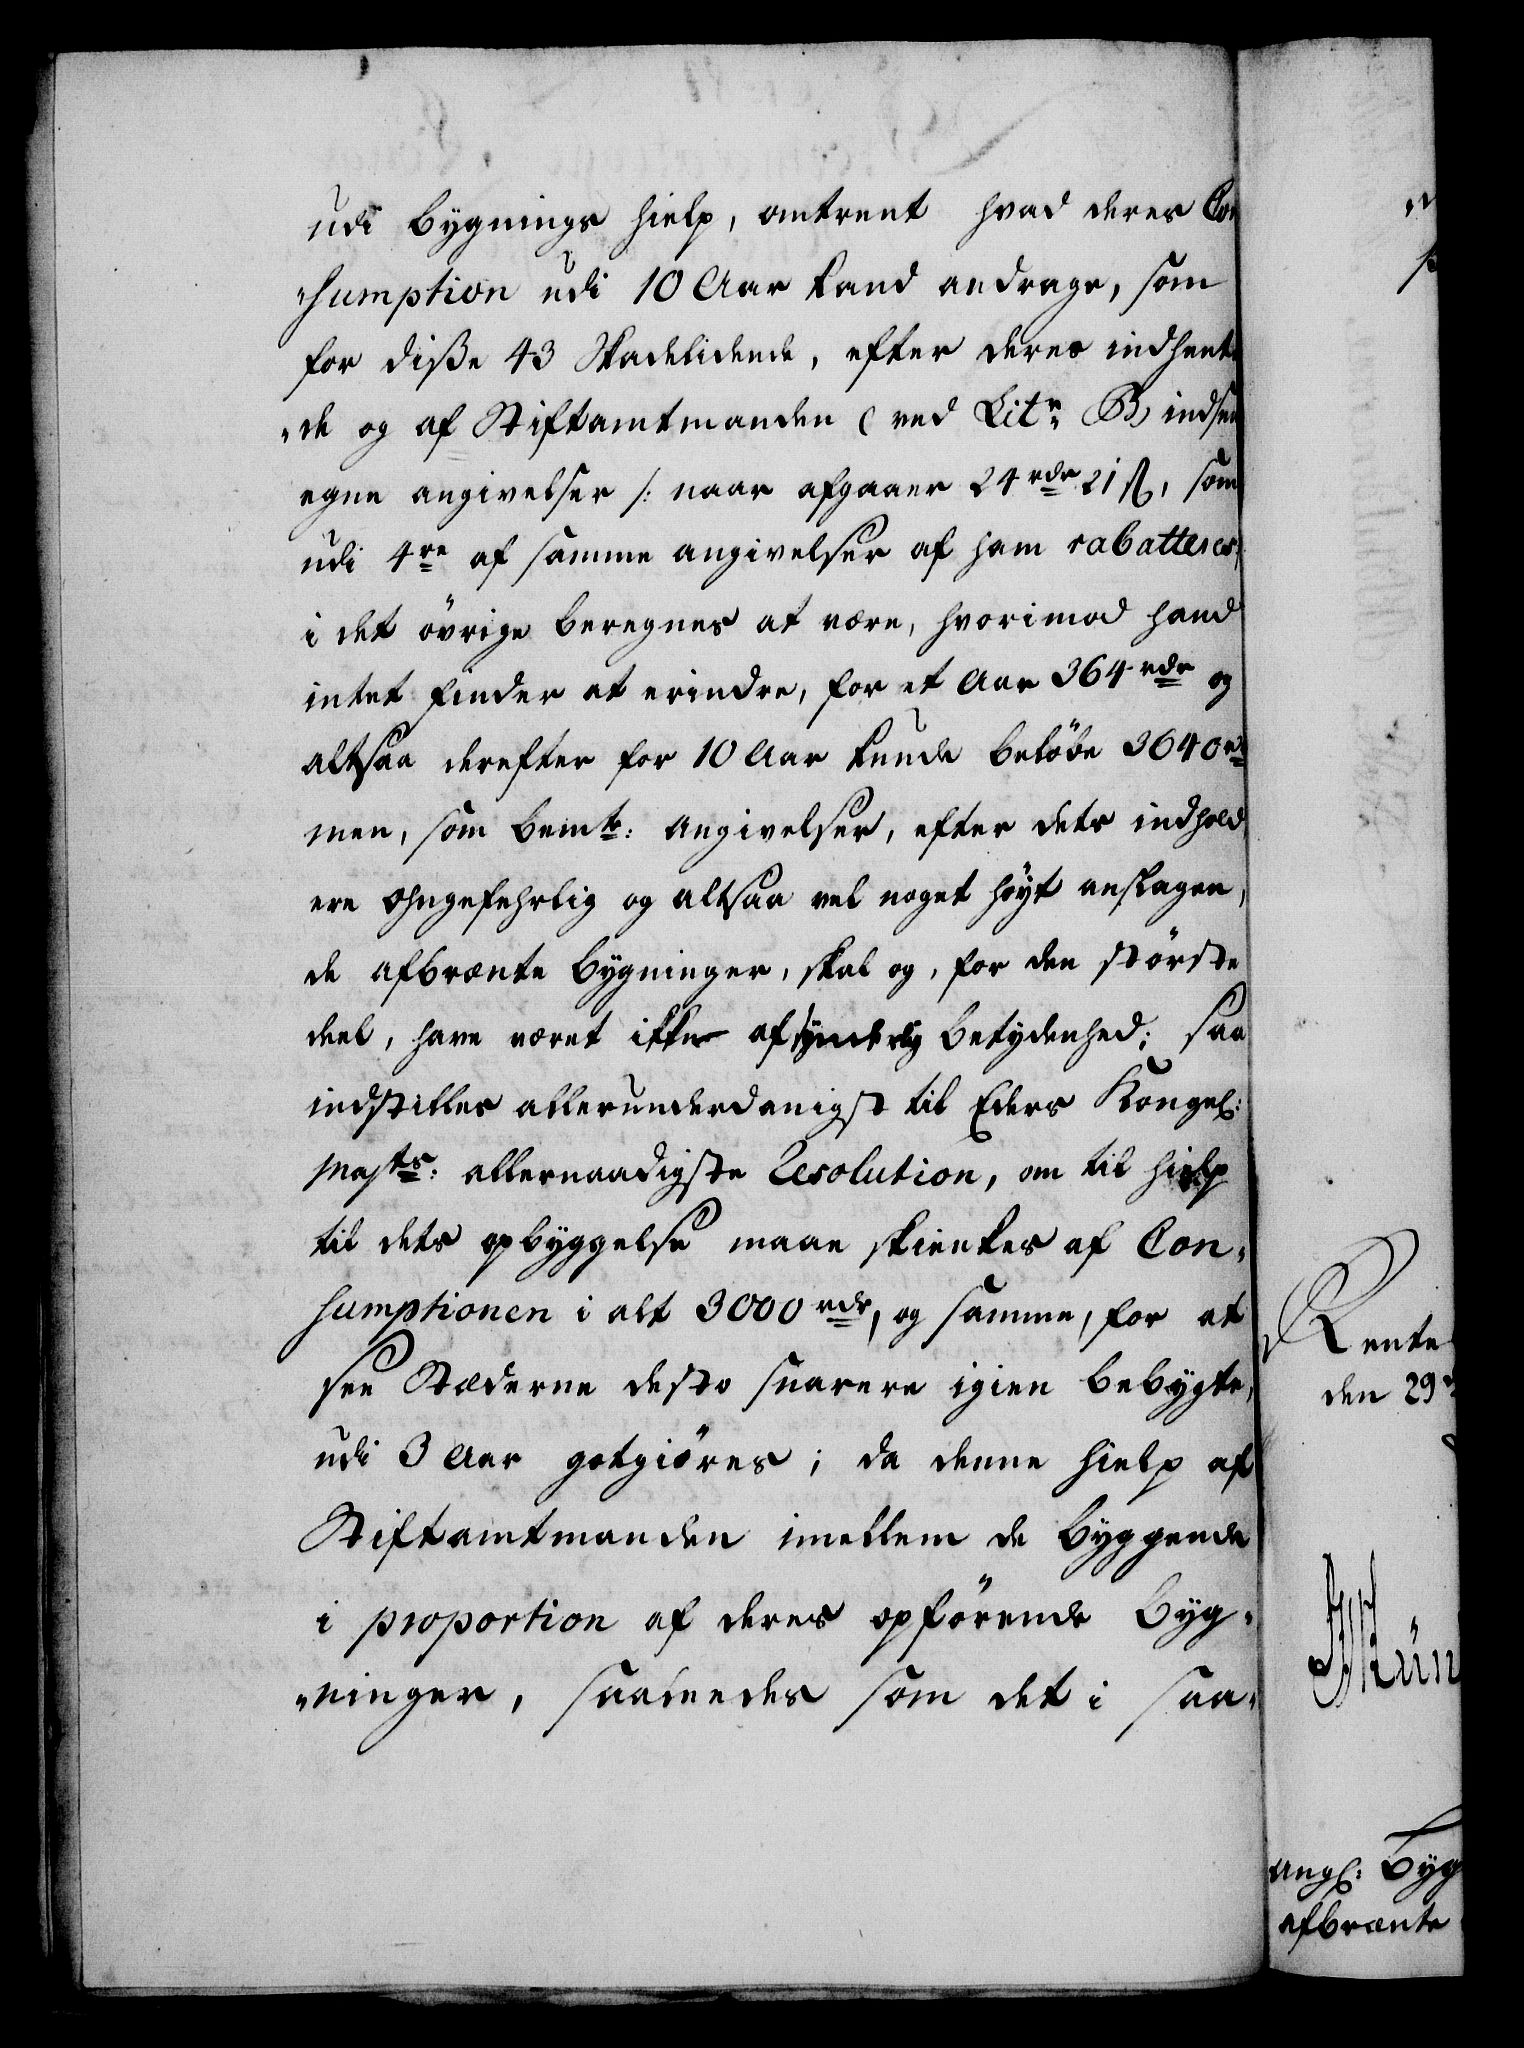 udi bygnings hielp, omtrent hvad deres Con
"sumption udi 10 Aar kand andrage, som
for diße 43 Skadelidende, efter deres indhent
"de og af Stiftamtmanden (ved Litr. B) indsen
egne angivelser /: naar afgaaer 24 rdr 21 ß, som
udi 4re af samme angivelser af ham rabatteres,
i det övrige beregnes at være, hvorimod hand
intet finder at erindre, for et Aar 364 rdr og
altsaa derefter for 10 Aar kunde belöbe 3640 rd
men, som bemte: angivelser, efter dets indhold
ere ohngefehrlig og altsaa vel noget höyt anslagen,
de afbrænte bygninger, skal og, for den störste
deel, have været ikke af synderlig betydenhed; saa
indstilles allerunderdanigst til Eders Kongel:
Majts: allernaadigste Resolution, om til hielp
til dets opbyggelse maae skienkes af Con"
sumptionen i alt 3000 rdr, og samme, for at
see Stæderne desto snarere igien bebygte,
udi 3 Aar gotgiöres; da denne hielp af
Stiftamtmanden imellem de byggende
i proportion af deres opförende byg"
"ninger, saaledes som det i saa"
Rente
den 29
Mün
Angl: byg
afbrænte